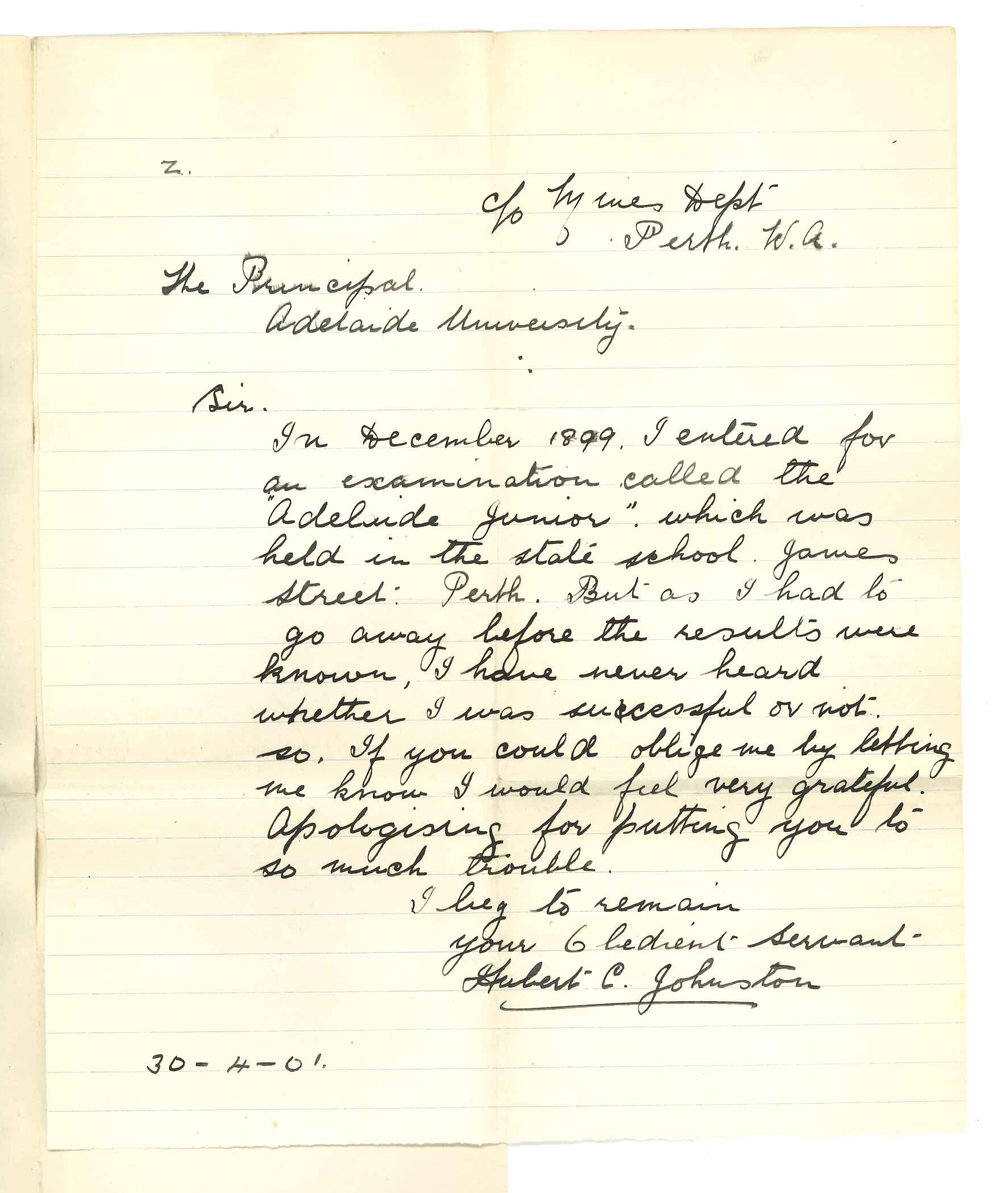 z.
c/o Mines Dept
Perth. W.A.
The Principal.
Adelaide University.
Sir.
In December 1899. I entered for
an examination called the
"Adelaide Junior". which was
held in the state school. James
Street. Perth. But as I had to
go away before the results were
known, I have never heard
whether I was successful or not.
so. If you could oblige me by letting
me know I would feel very grateful.
Apologising for putting you to
so much trouble.
I beg to remain
your Obedient Servant
Hubert C. Johnston
30-4-01.